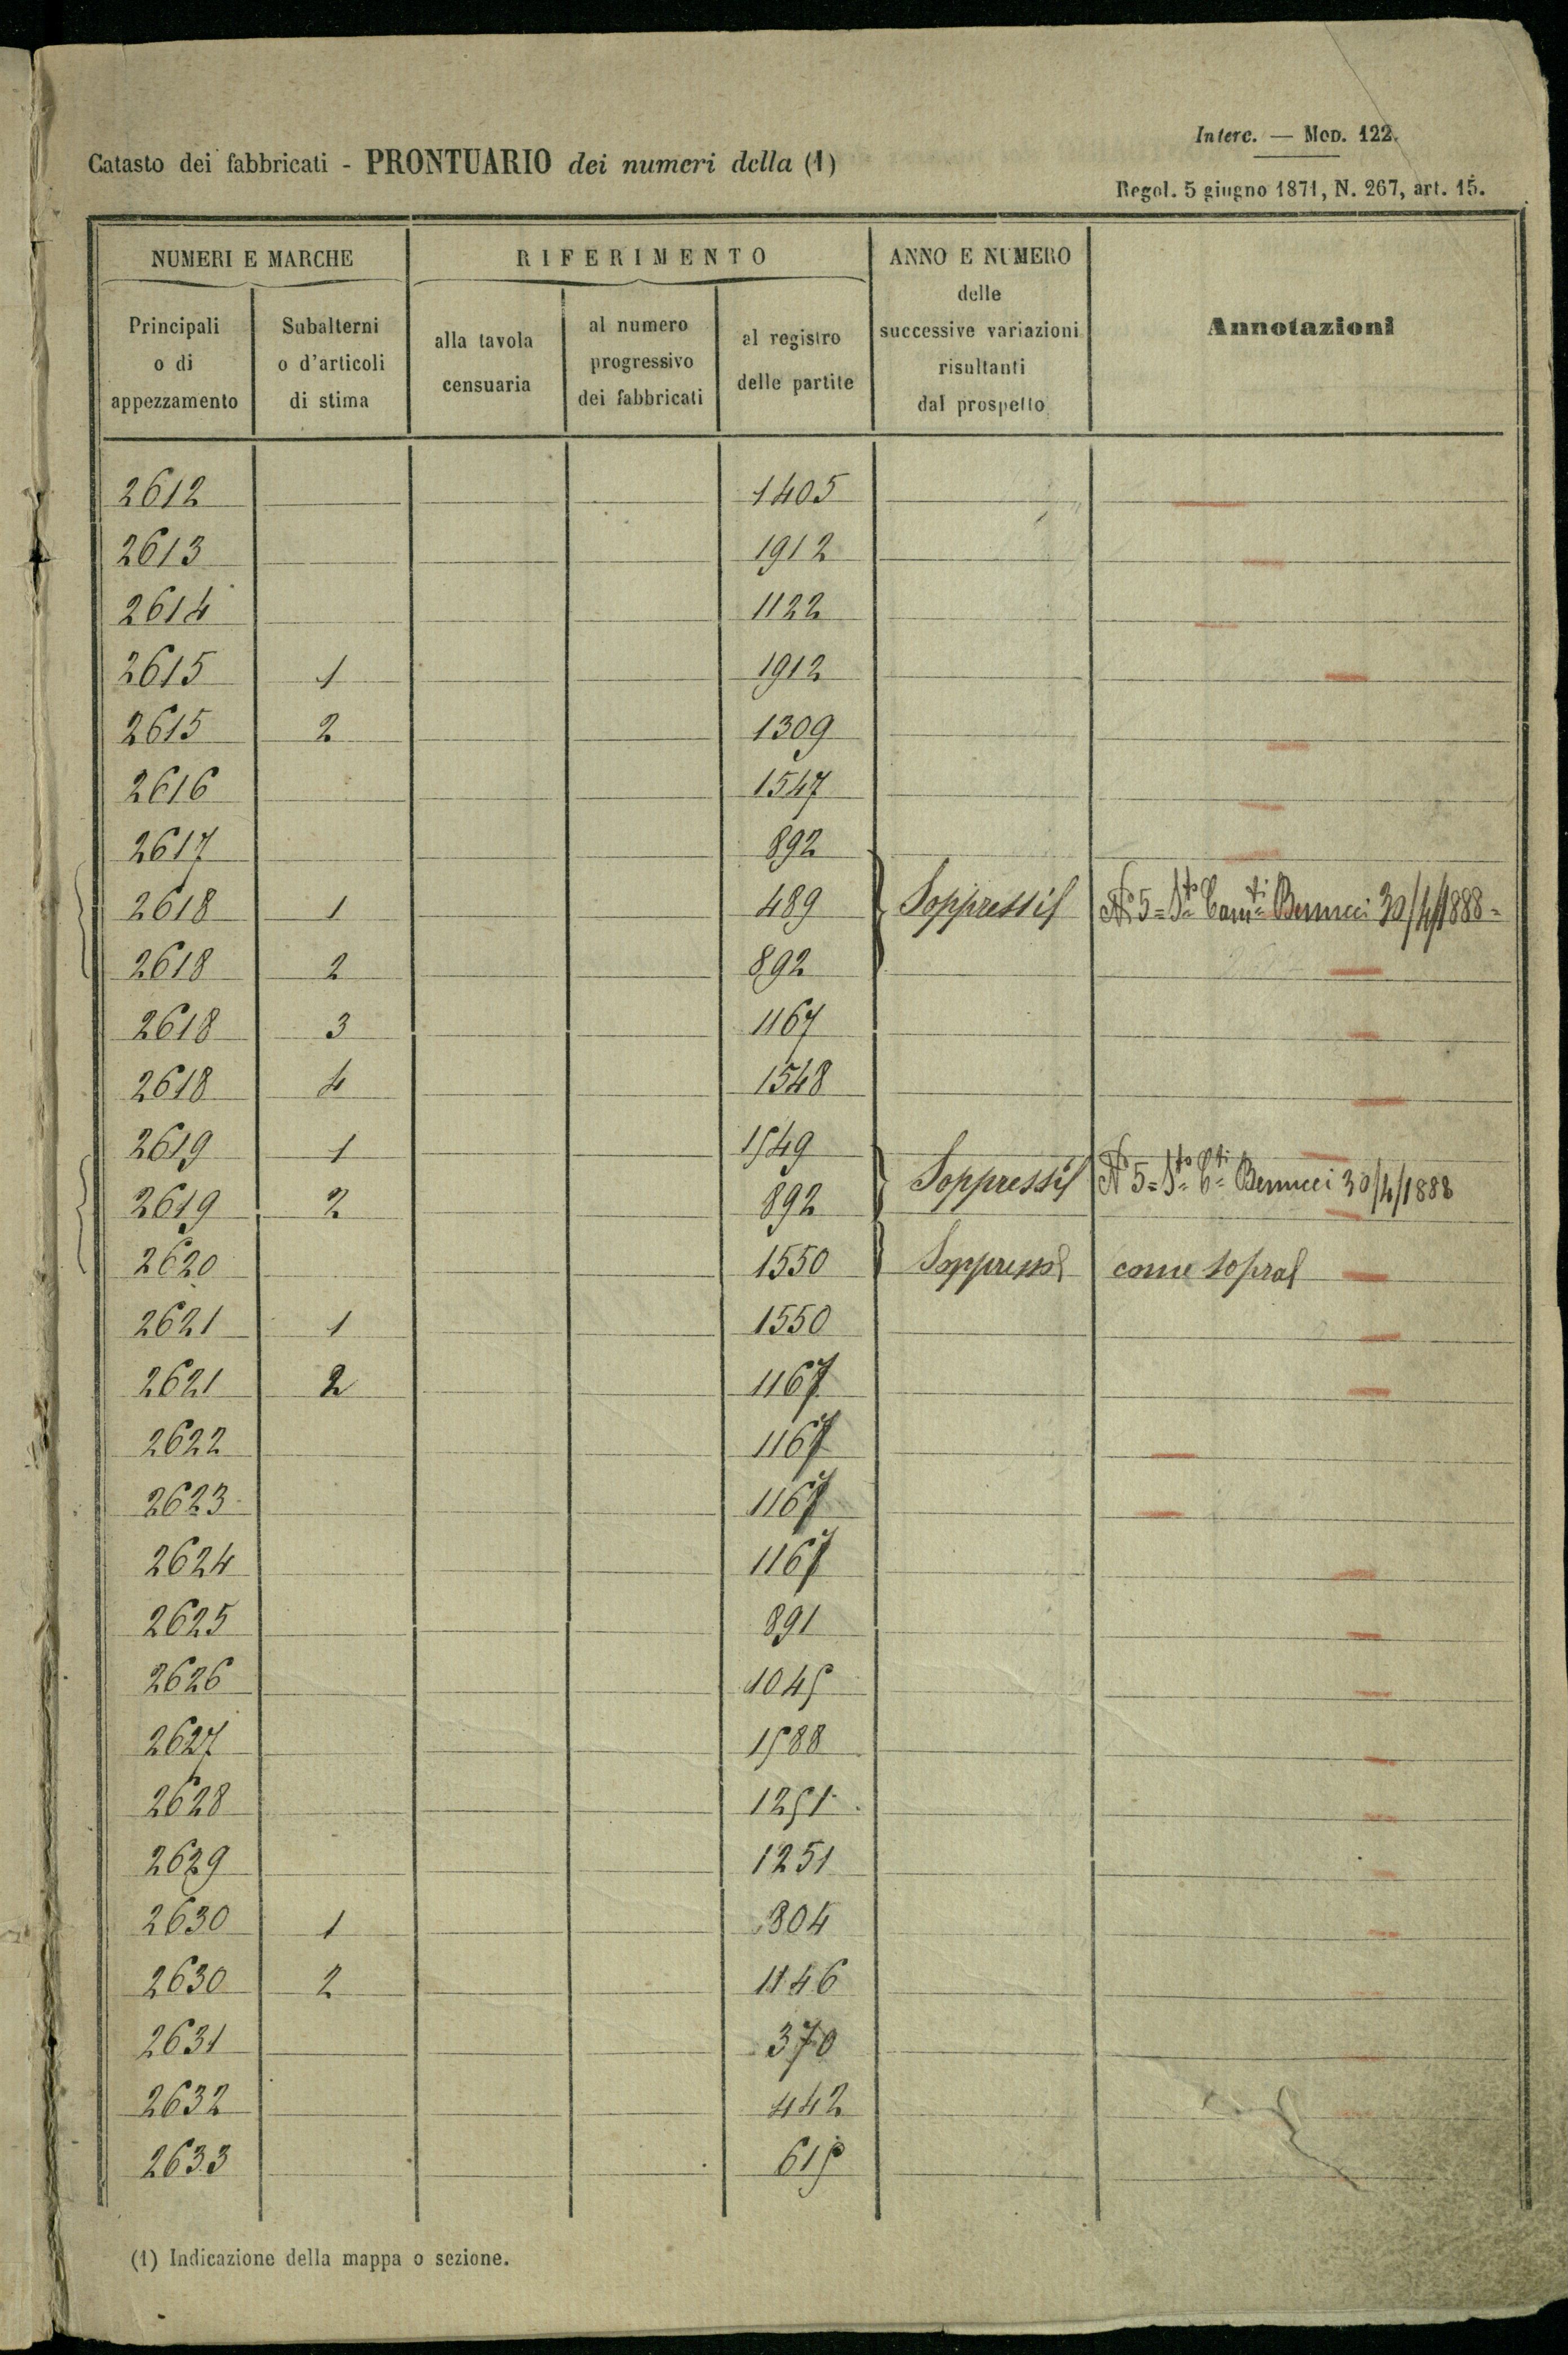 Interc. — Mod. 122.
Catasto dei fabbricati - PRONTUARIO dei numeri della (1)
Regol. 5 giugno 1871, N. 267, art. 15.
NUMERI E MARCHE
RIFERIMENTO
ANNO E NUMERO delle successive variazioni risultanti dal prospetto
Annotazioni
Principali o di appezzamento
Subalterni o d'articoli di stima
alla tavola censuaria
al numero progressivo dei fabbricati
al registro delle partite
2612 1405
2613 1912
2614 1122
2615 1 1912
2615 2 1309
2616 1547
2617 892
2618 1 489 Soppressi N° 5 = Bennicci 30/4/1888 =
2618 2 892
2618 3 1167
2618 4 1548
2619 1 1549
2619 2 892 Soppressi N° 5 = Bennicci 30/4/1888
2620 1550 Soppresso come sopra
2621 1 1550
2621 2 1167
2622 1167
2623 1167
2624 1167
2625 891
2626 1045
2627 1588
2628 1251
2629 1251
2630 1 304
2630 2 1146
2631 370
2632 442
2633 615
(1) Indicazione della mappa o sezione.